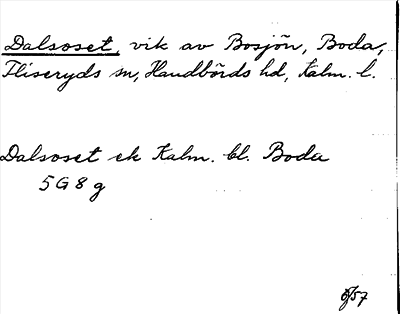 Dalsoset, vik av Bosjön, Boda,
Fliseryds sn, Handbörds hd, Kalm. l.
Dalsoset ek Kalm. bl. Boda
5G8g